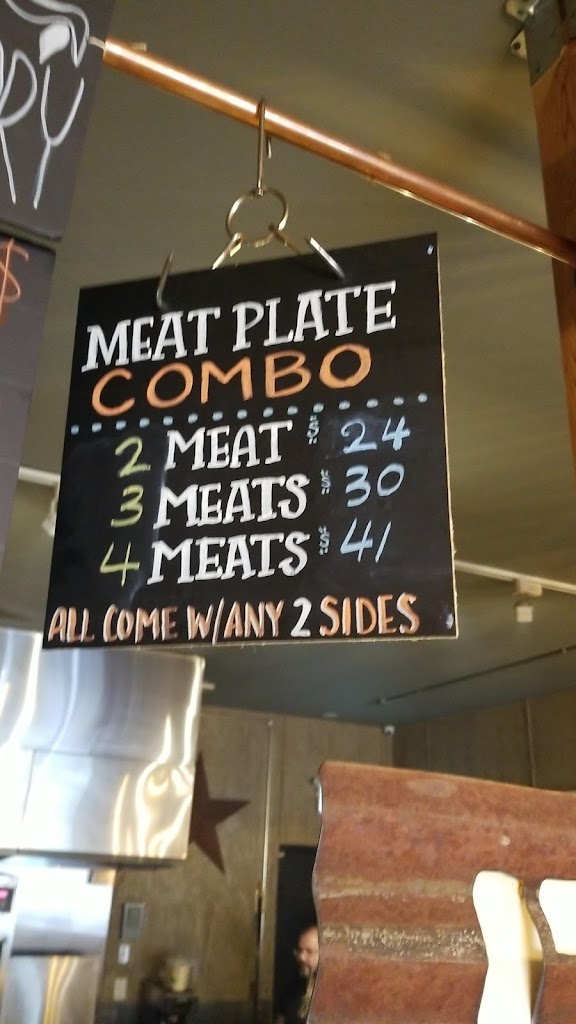 RY
$
MEAT PLATE
COMBO
2 MEAT $ 24
3 MEATS $ 30
4 MEATS $ 41
ALL COME W/ANY 2 SIDES